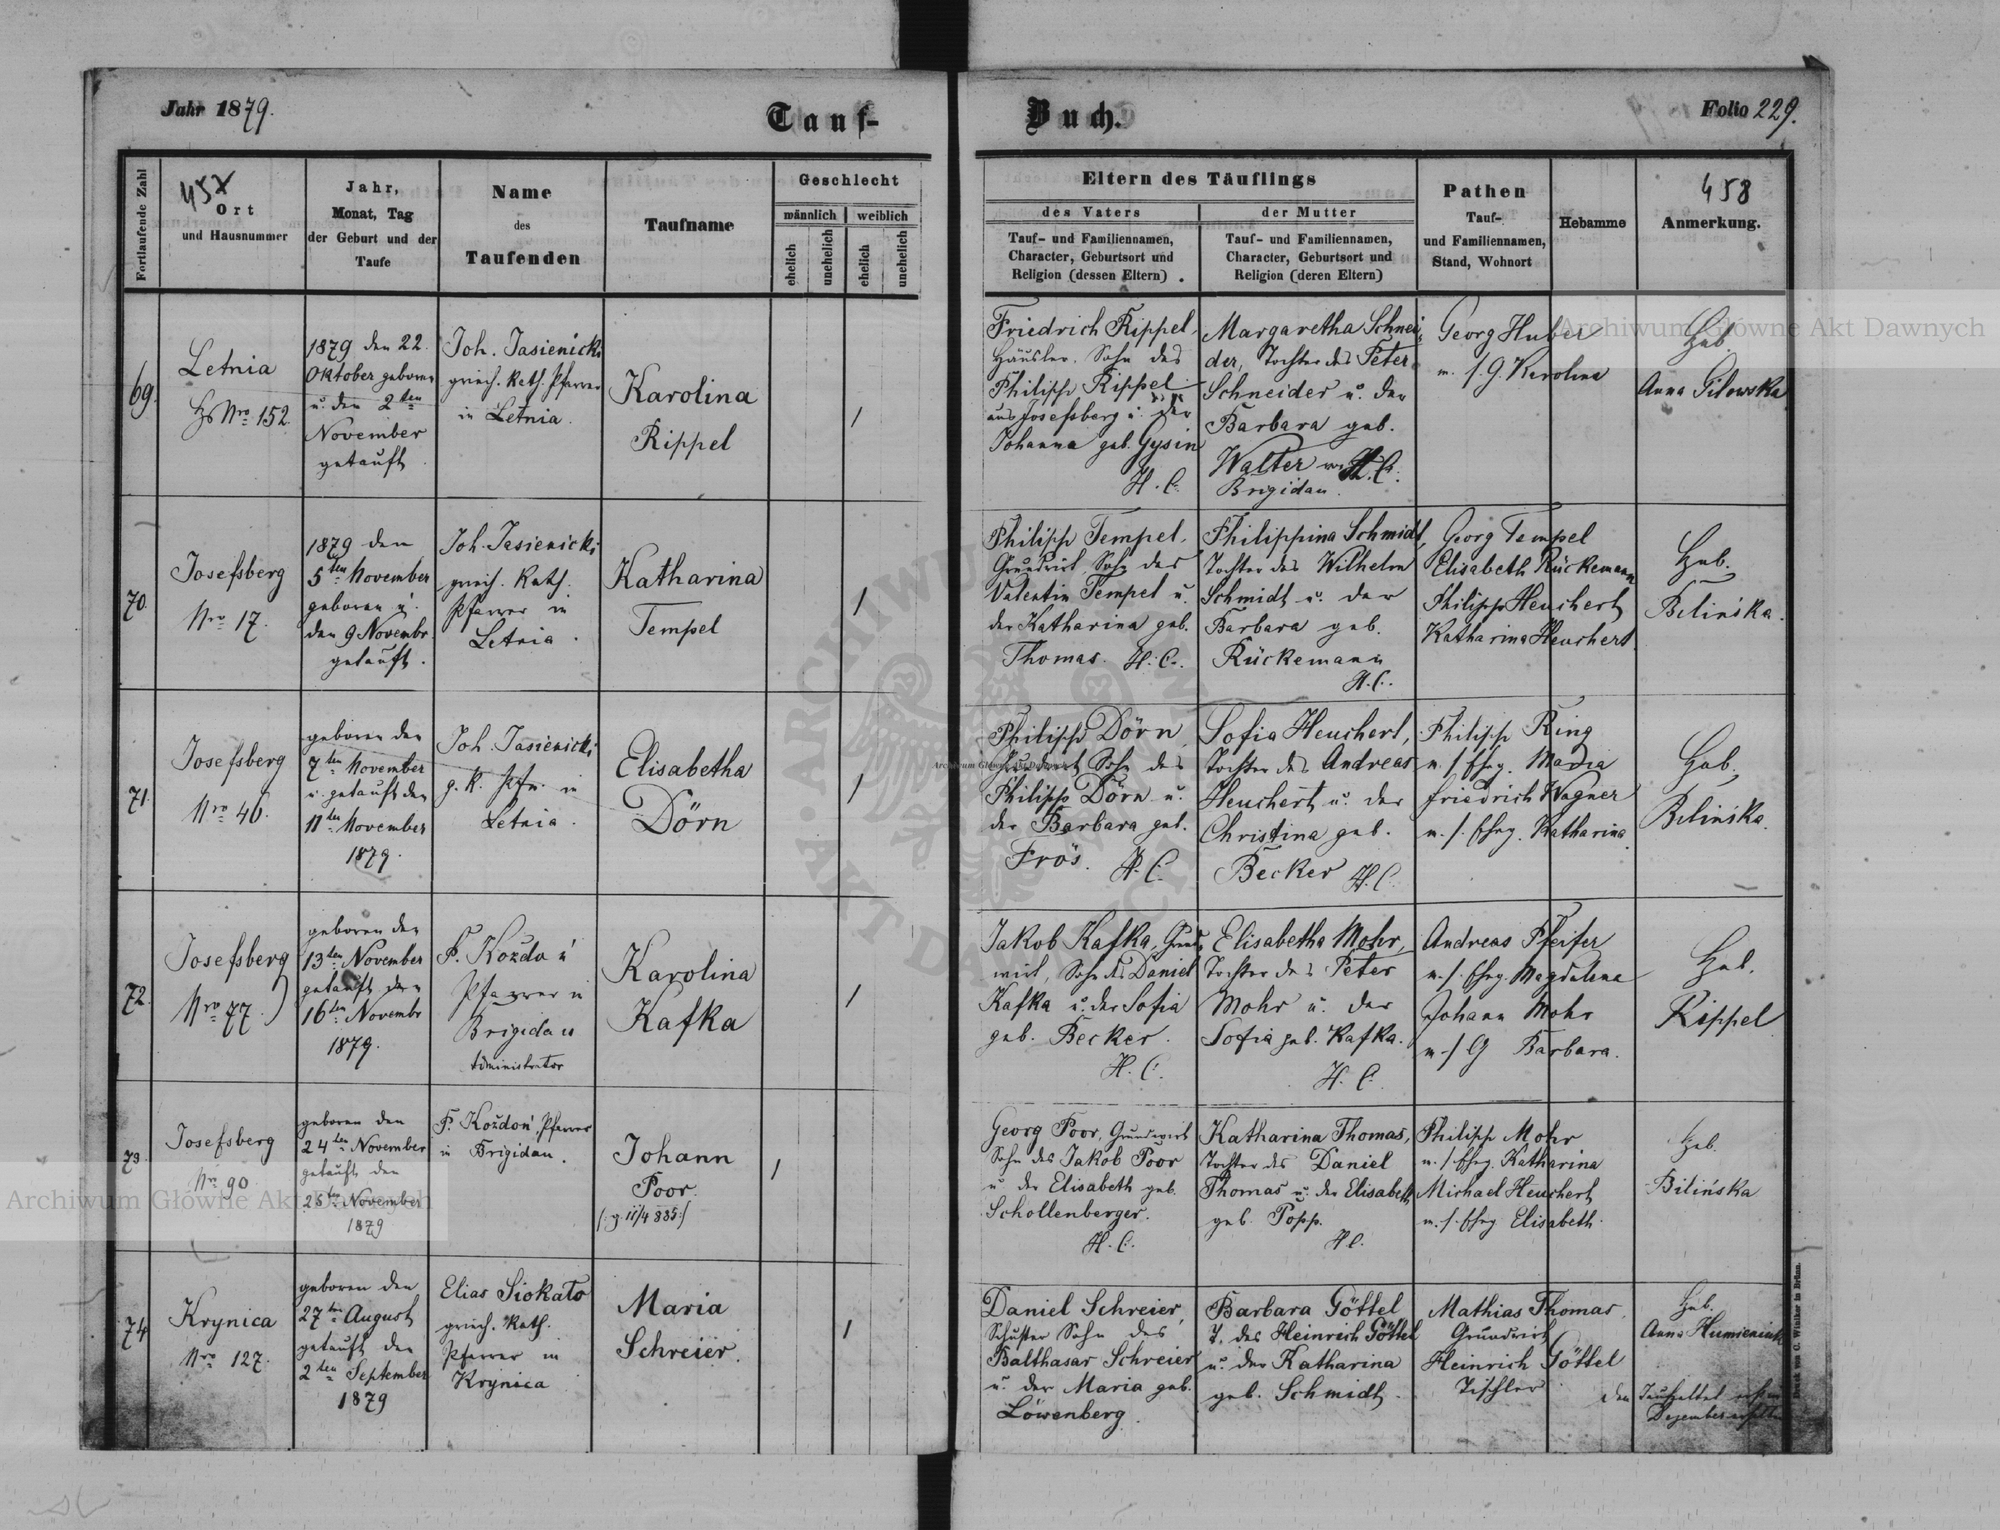 Jahr 1879.
Tauf-
Buch.
Folio 229.
Fortlaufende Zahl
457
Ort
und Hausnummer
Jahr,
Monat, Tag
der Geburt und der
Taufe
Name
des
Taufenden
Taufname
Geschlecht
männlich
weiblich
ehelich
unehelich
ehelich
unehelich
Eltern des Täuflings
des Vaters
der Mutter
Tauf- und Familiennamen,
Character, Geburtsort und
Religion (dessen Eltern)
Tauf- und Familiennamen,
Character, Geburtsort und
Religion (deren Eltern)
Pathen
Tauf-
und Familiennamen,
Stand, Wohnort
Hebamme
458
Anmerkung.
69.
Letnia
Hs Nro 152.
1879 den 22.
Oktober geboren
u. den 2ten
November
getauft
Joh. Jasienicki
griech. kath. Pfarrer
in Letnia.
Karolina
Rippel
1
Friedrich Rippel,
Häusler, Sohn des
Philipp Rippel
aus Josefsberg u. der
Johanna geb. Gysin
H. C.
Margaretha Schnei-
der, Tochter des Peter
Schneider u. der
Barbara geb.
Walter H. C.
Brigidau.
Georg Huber
m. s. G. Karolina
Heb.
Anna Gilowska
70.
Josefsberg
Nro 17.
1879 den
5ten November
geboren u.
den 9 Novembr
getauft.
Joh. Jasienicki
griech. Kath.
Pfarrer in
Letnia.
Katharina
Tempel
1
Philipp Tempel,
Grundwirt, Sohn des
Valentin Tempel u.
der Katharina geb.
Thomas. H. C.
Philippina Schmidt,
Tochter des Wilhelm
Schmidt u. der
Barbara geb.
Rückemann
H. C.
Georg Tempel
Elisabeth Rückemann
Philipp Heuchert
Katharina Heuchert
Heb.
Bilińska.
71.
Josefsberg
Nro 46.
geboren den
7ten November
u. getauft den
11ten November
1879.
Joh. Jasienicki
g. k. Pfr. in
Letnia.
Elisabetha
Dörn
1
Philipp Dörn,
Grundwirt Sohn des
Philipp Dörn u.
der Barbara geb.
Frös. H. C.
Sofia Heuchert,
Tochter des Andreas
Heuchert u. der
Christina geb.
Becker H. C.
Philipp Ring
m. s. Eheg. Maria
Friedrich Wagner
m. s. Eheg. Katharina.
Heb.
Bilińska.
72.
Josefsberg
Nro 77.
geboren den
13ten November
getauft den
16ten Novembr
1879.
F. Koždoń
Pfarrer in
Brigidau
Administrator
Karolina
Kafka
1
Jakob Kafka, Grund-
wirt, Sohn des Daniel
Kafka u. der Sofia
geb. Becker.
H. C.
Elisabetha Mohr,
Tochter des Peter
Mohr u. der
Sofia geb. Kafka.
H. C.
Andreas Pfeifer
m. s. Eheg. Magdalena
Johann Mohr
m. s. G Barbara.
Heb.
Rippel
73.
Josefsberg
Nro 90
geboren den
24ten November
getauft den
28ten November
1879
F. Koždoń, Pfarrer
in Brigidau.
Johann
Poor.
1
Georg Poor, Grundwirt
Sohn des Jakob Poor
u. der Elisabeth geb.
Schollenberger.
H. C.
Katharina Thomas,
Tochter des Daniel
Thomas u. der Elisabeth
geb. Popp.
H C.
Philipp Mohr
m. s. Eheg. Katharina
Michael Heuchert
m. s. Eheg Elisabeth.
Heb.
Bilińska
74
Krynica
Nro 127.
geboren den
27ten August
getauft den
2ten September
1879
Elias Siokato
griech. Kath.
Pfarrer in
Krynica
Maria
Schreier.
1
Daniel Schreier,
Schuster Sohn des
Balthasar Schreier
u. der Maria geb.
Löwenberg.
Barbara Göttel
T. des Heinrich Göttel
u. der Katharina
geb. Schmidt.
Mathias Thomas,
Grundwirt
Heinrich Göttel
Tischler
Heb.
Anna Humieniuk
den Taufzettel erst im
Dezember erhalten
Druck von C. Winiker in Brünn.
Archiwum Główne Akt Dawnych
Archiwum Główne Akt Dawnych
Archiwum Główne Akt Dawnych